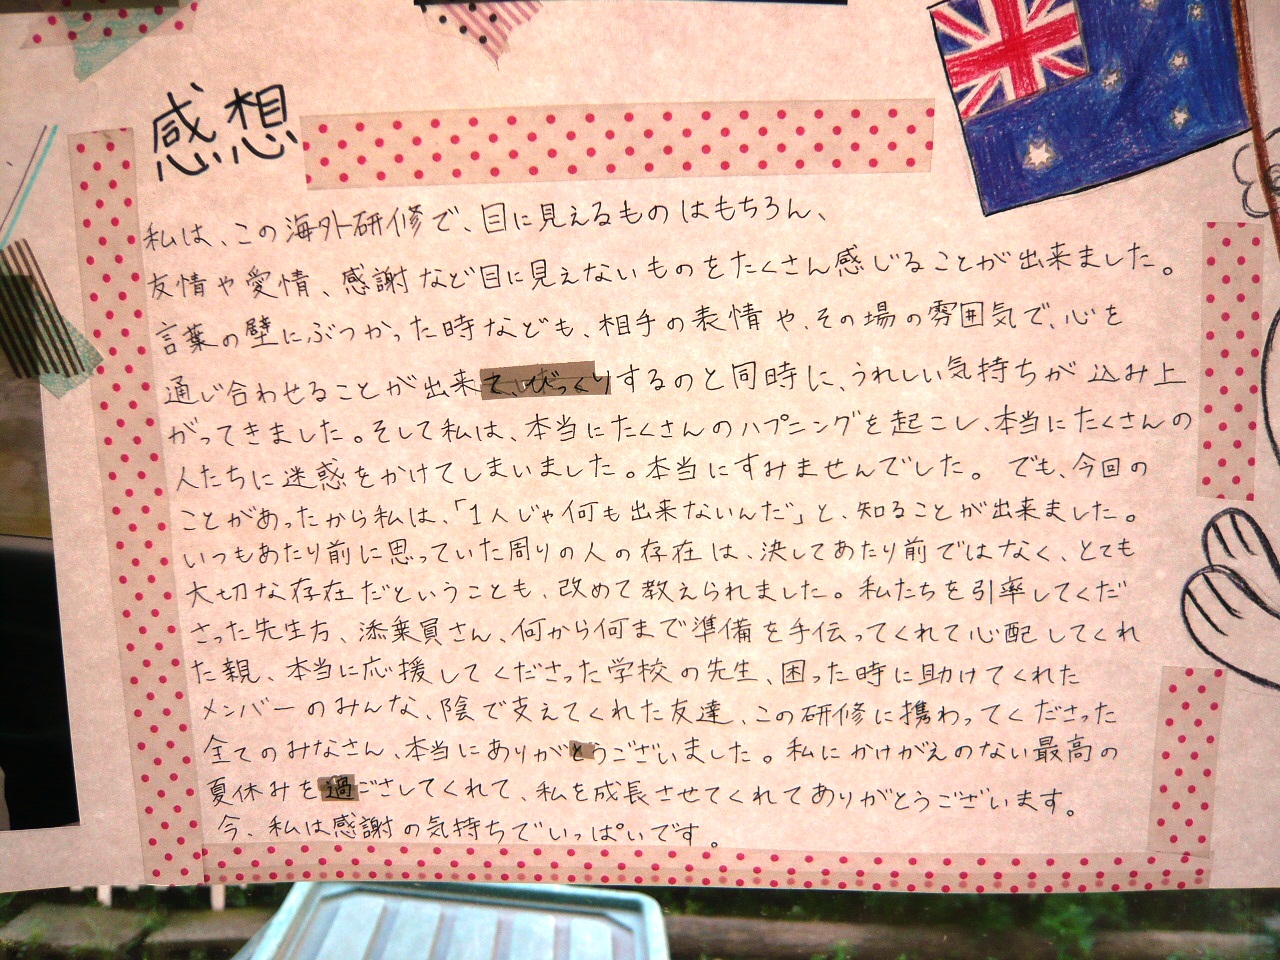 感想
私は、この海外研修で、目に見えるものはもちろん、
友情や愛情、感謝など目に見えないものをたくさん感じることが出来ました。
言葉の壁にぶつかった時なども、相手の表情や、その場の雰囲気で、心を
通じ合わせることが出来て、びっくりするのと同時に、うれしい気持ちが込み上
がってきました。そして私は、本当にたくさんのハプニングを起こし、本当にたくさんの
人たちに迷惑をかけてしまいました。本当にすみませんでした。でも、今回の
ことがあったから私は、「1人じゃ何も出来ないんだ」と、知ることが出来ました。
いつもあたり前に思っていた周りの人の存在は、決してあたり前ではなく、とても
大切な存在だということも、改めて教えられました。私たちを引率してくだ
さった先生方、添乗員さん、何から何まで準備を手伝ってくれて心配してくれ
た親、本当に応援してくださった学校の先生、困った時に助けてくれた
メンバーのみんな、陰で支えてくれた友達、この研修に携わってくださった
全てのみなさん、本当にありがとうございました。私にかけがえのない最高の
夏休みを過ごさしてくれて、私を成長させてくれてありがとうございます。
今、私は感謝の気持ちでいっぱいです。